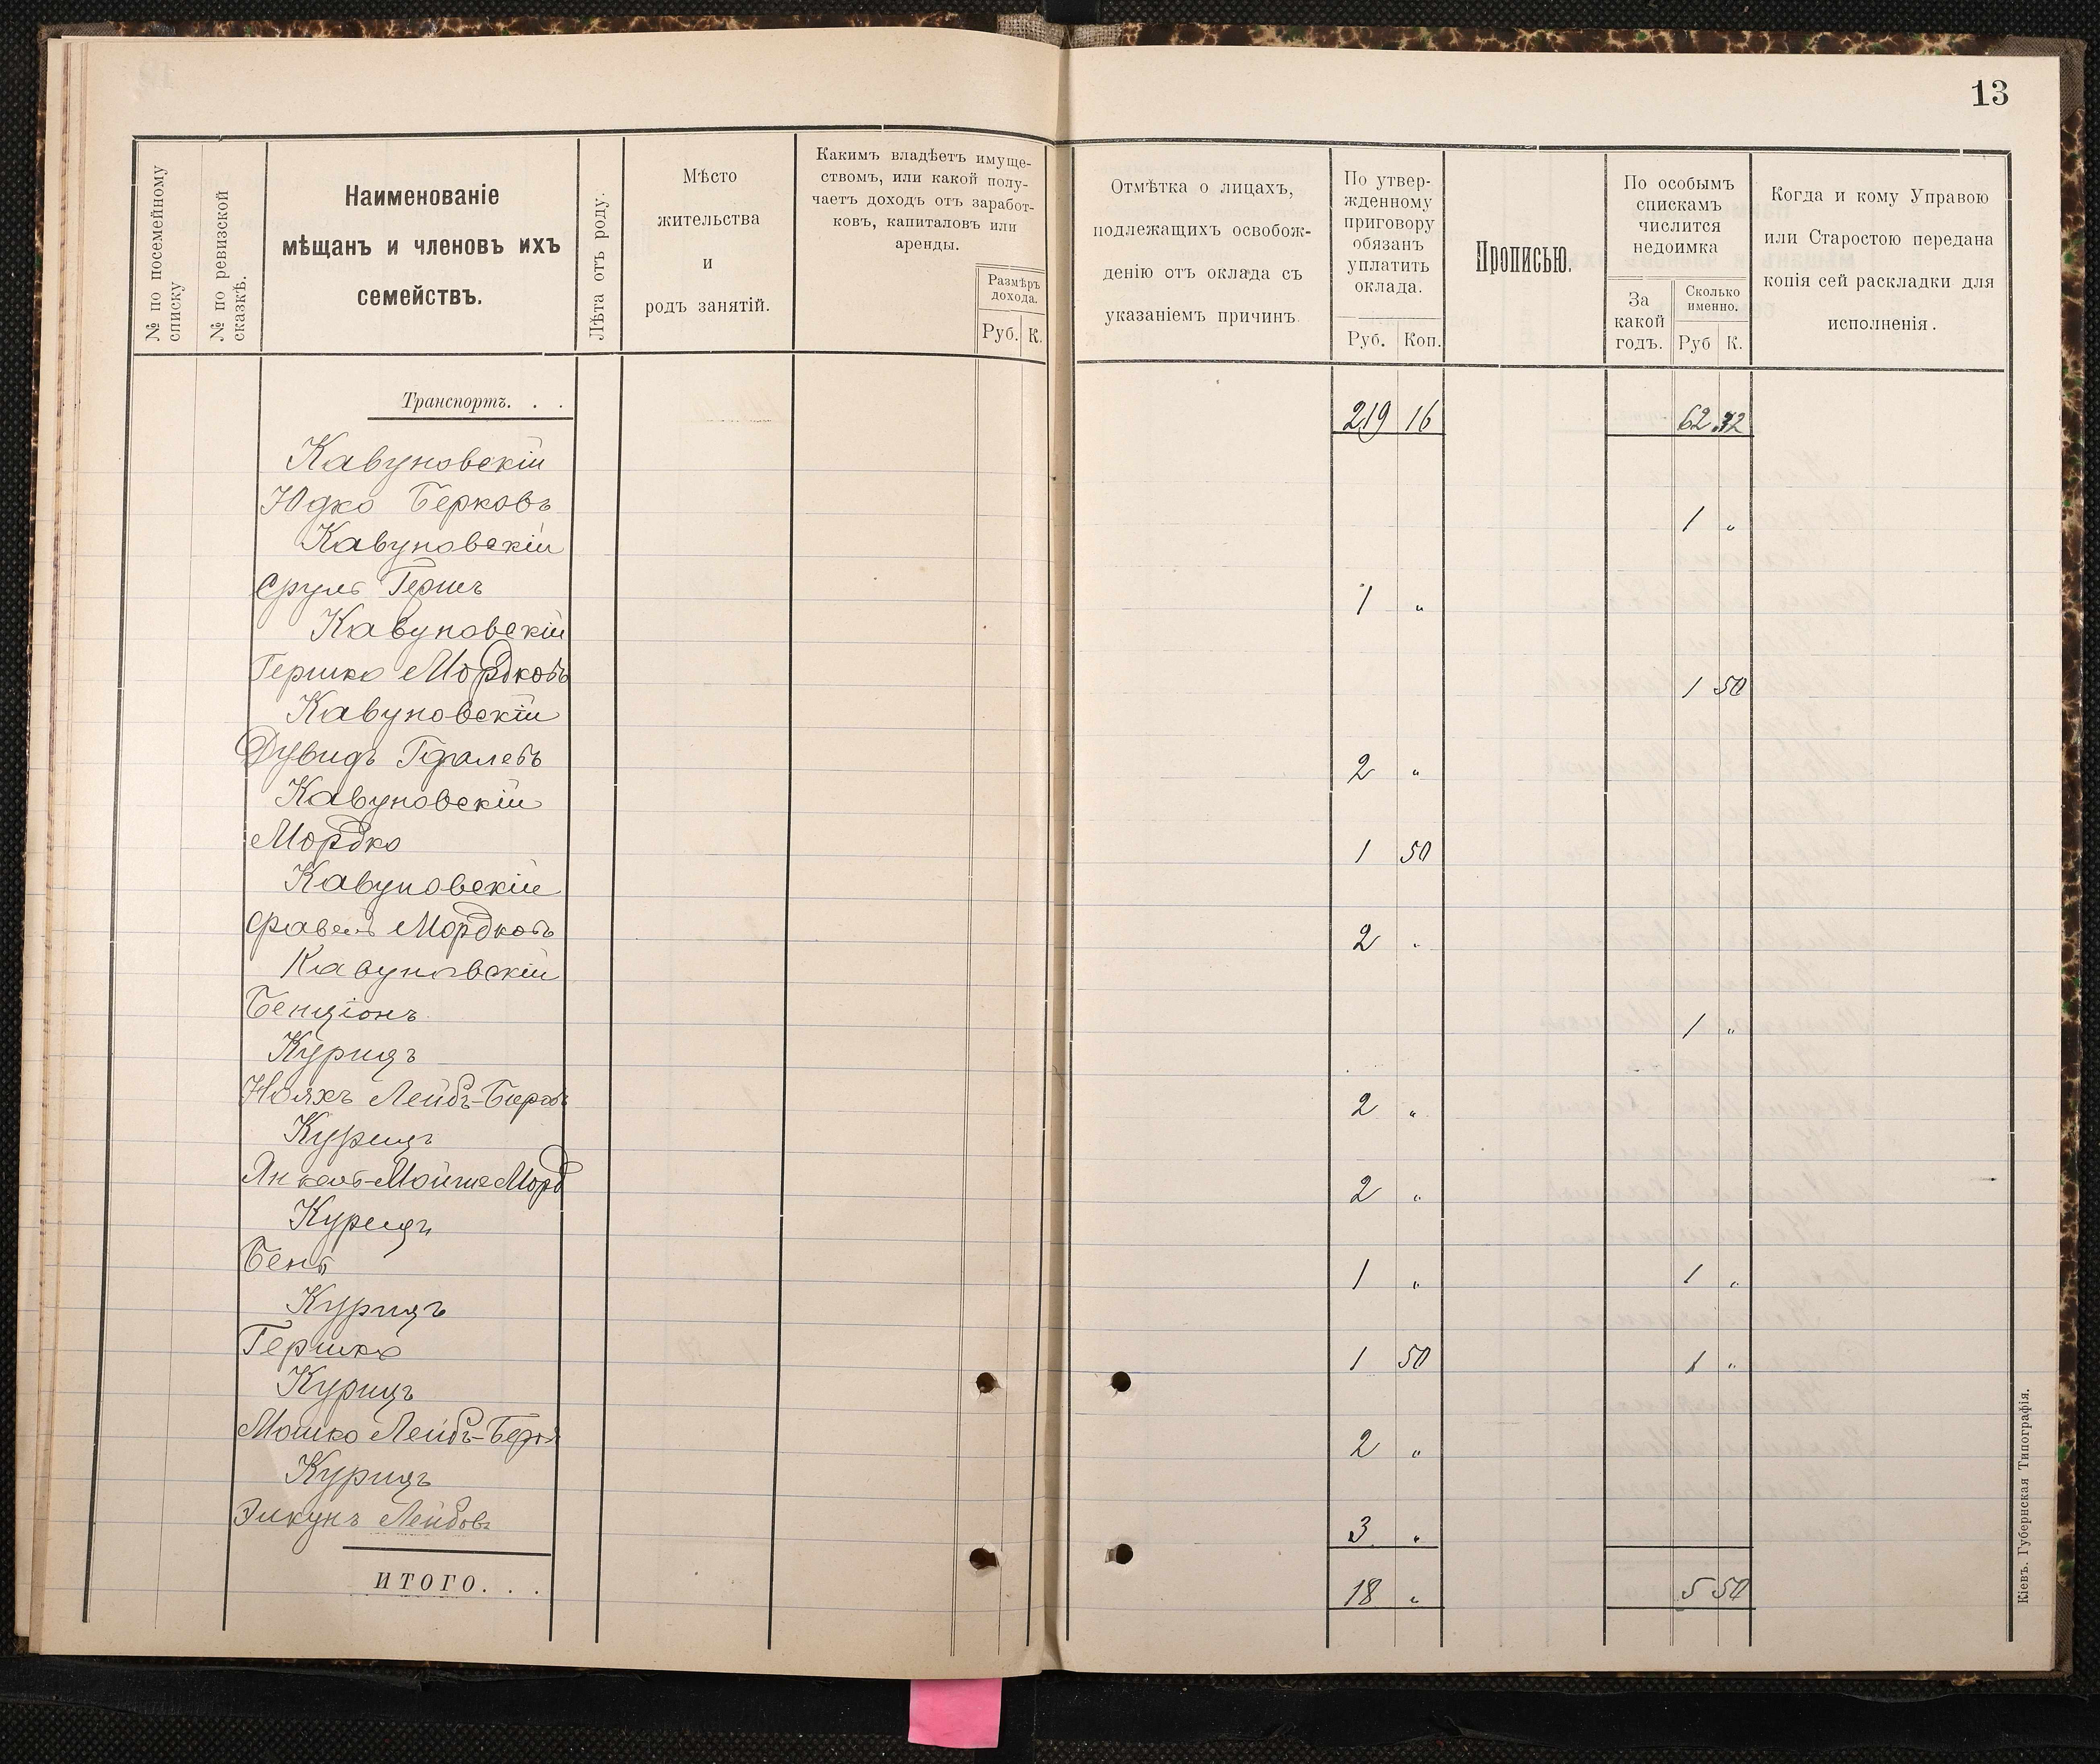 13
№ по посемейному списку
№ по ревизской сказкѣ.
Наименованіе
мѣщанъ и членовъ ихъ
семействъ.
Лѣта отъ роду.
Мѣсто
жительства
и
родъ занятій.
Какимъ владѣетъ имуще-
ствомъ, или какой полу-
чаетъ доходъ отъ заработ-
ковъ, капиталовъ или
аренды.
Размѣръ
дохода.
Руб. К.
Отмѣтка о лицахъ,
подлежащихъ освобож-
денію отъ оклада съ
указаніемъ причинъ
По утвер-
жденному
приговору
обязанъ
уплатить
оклада.
Руб. Коп.
Прописью.
По особымъ
спискамъ
числится
недоимка
За
какой
годъ.
Сколько
именно.
Руб К.
Когда и кому Управою
или Старостою передана
копія сей раскладки для
исполненія.
Транспортъ. . . 219 16 62
Кавуновскій
Юдко Берковъ 1 "
Кавуновскій
Сруль Гершъ 1 "
Кавуновскій
Гершко Мордковъ 1 50
Кавуновскій
Дувидъ 2 "
Кавуновскій
Мордко 1 50
Кавуновскій
Мордковъ 2 "
Кавуновскій
Бенціонъ 1 "
Курицъ
Нояхъ Лейбъ- 2 "
Курицъ
Янкель-Мойше Морд 2 "
Курицъ
Бень 1 " 1 "
Курицъ
Гершко 1 50 1 "
Курицъ
Мошко Лейбъ- 2 "
Курицъ
Элкунъ Лейбовъ 3 "
ИТОГО. . . 18 " 5 50
Кіевъ. Губернская Типографія.